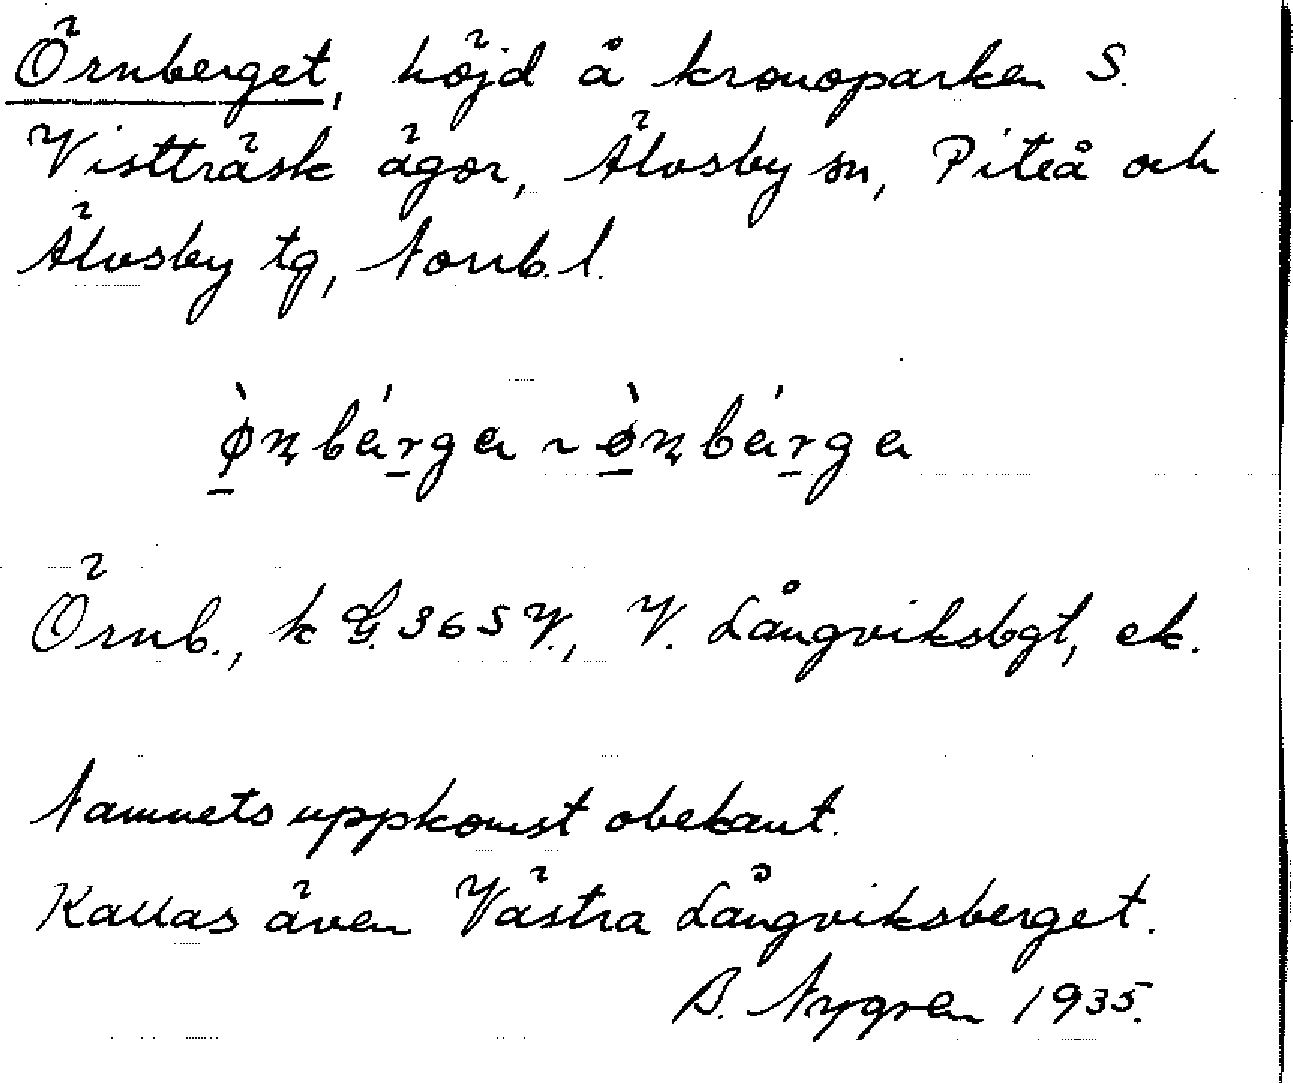 Örnberget, höjd å kronoparken S.
Vistträsk ägor, Älvsby sn, Piteå och
Älvsby tg, Norrb. l.
ø̀ɳbérga ~ ø̀ɳbérga
Örnb., k G. 365 V., V. Långviksbgt, ek.
Namnets uppkomst obekant.
Kallas även Västra Långviksberget.
B. Nygren 1935.